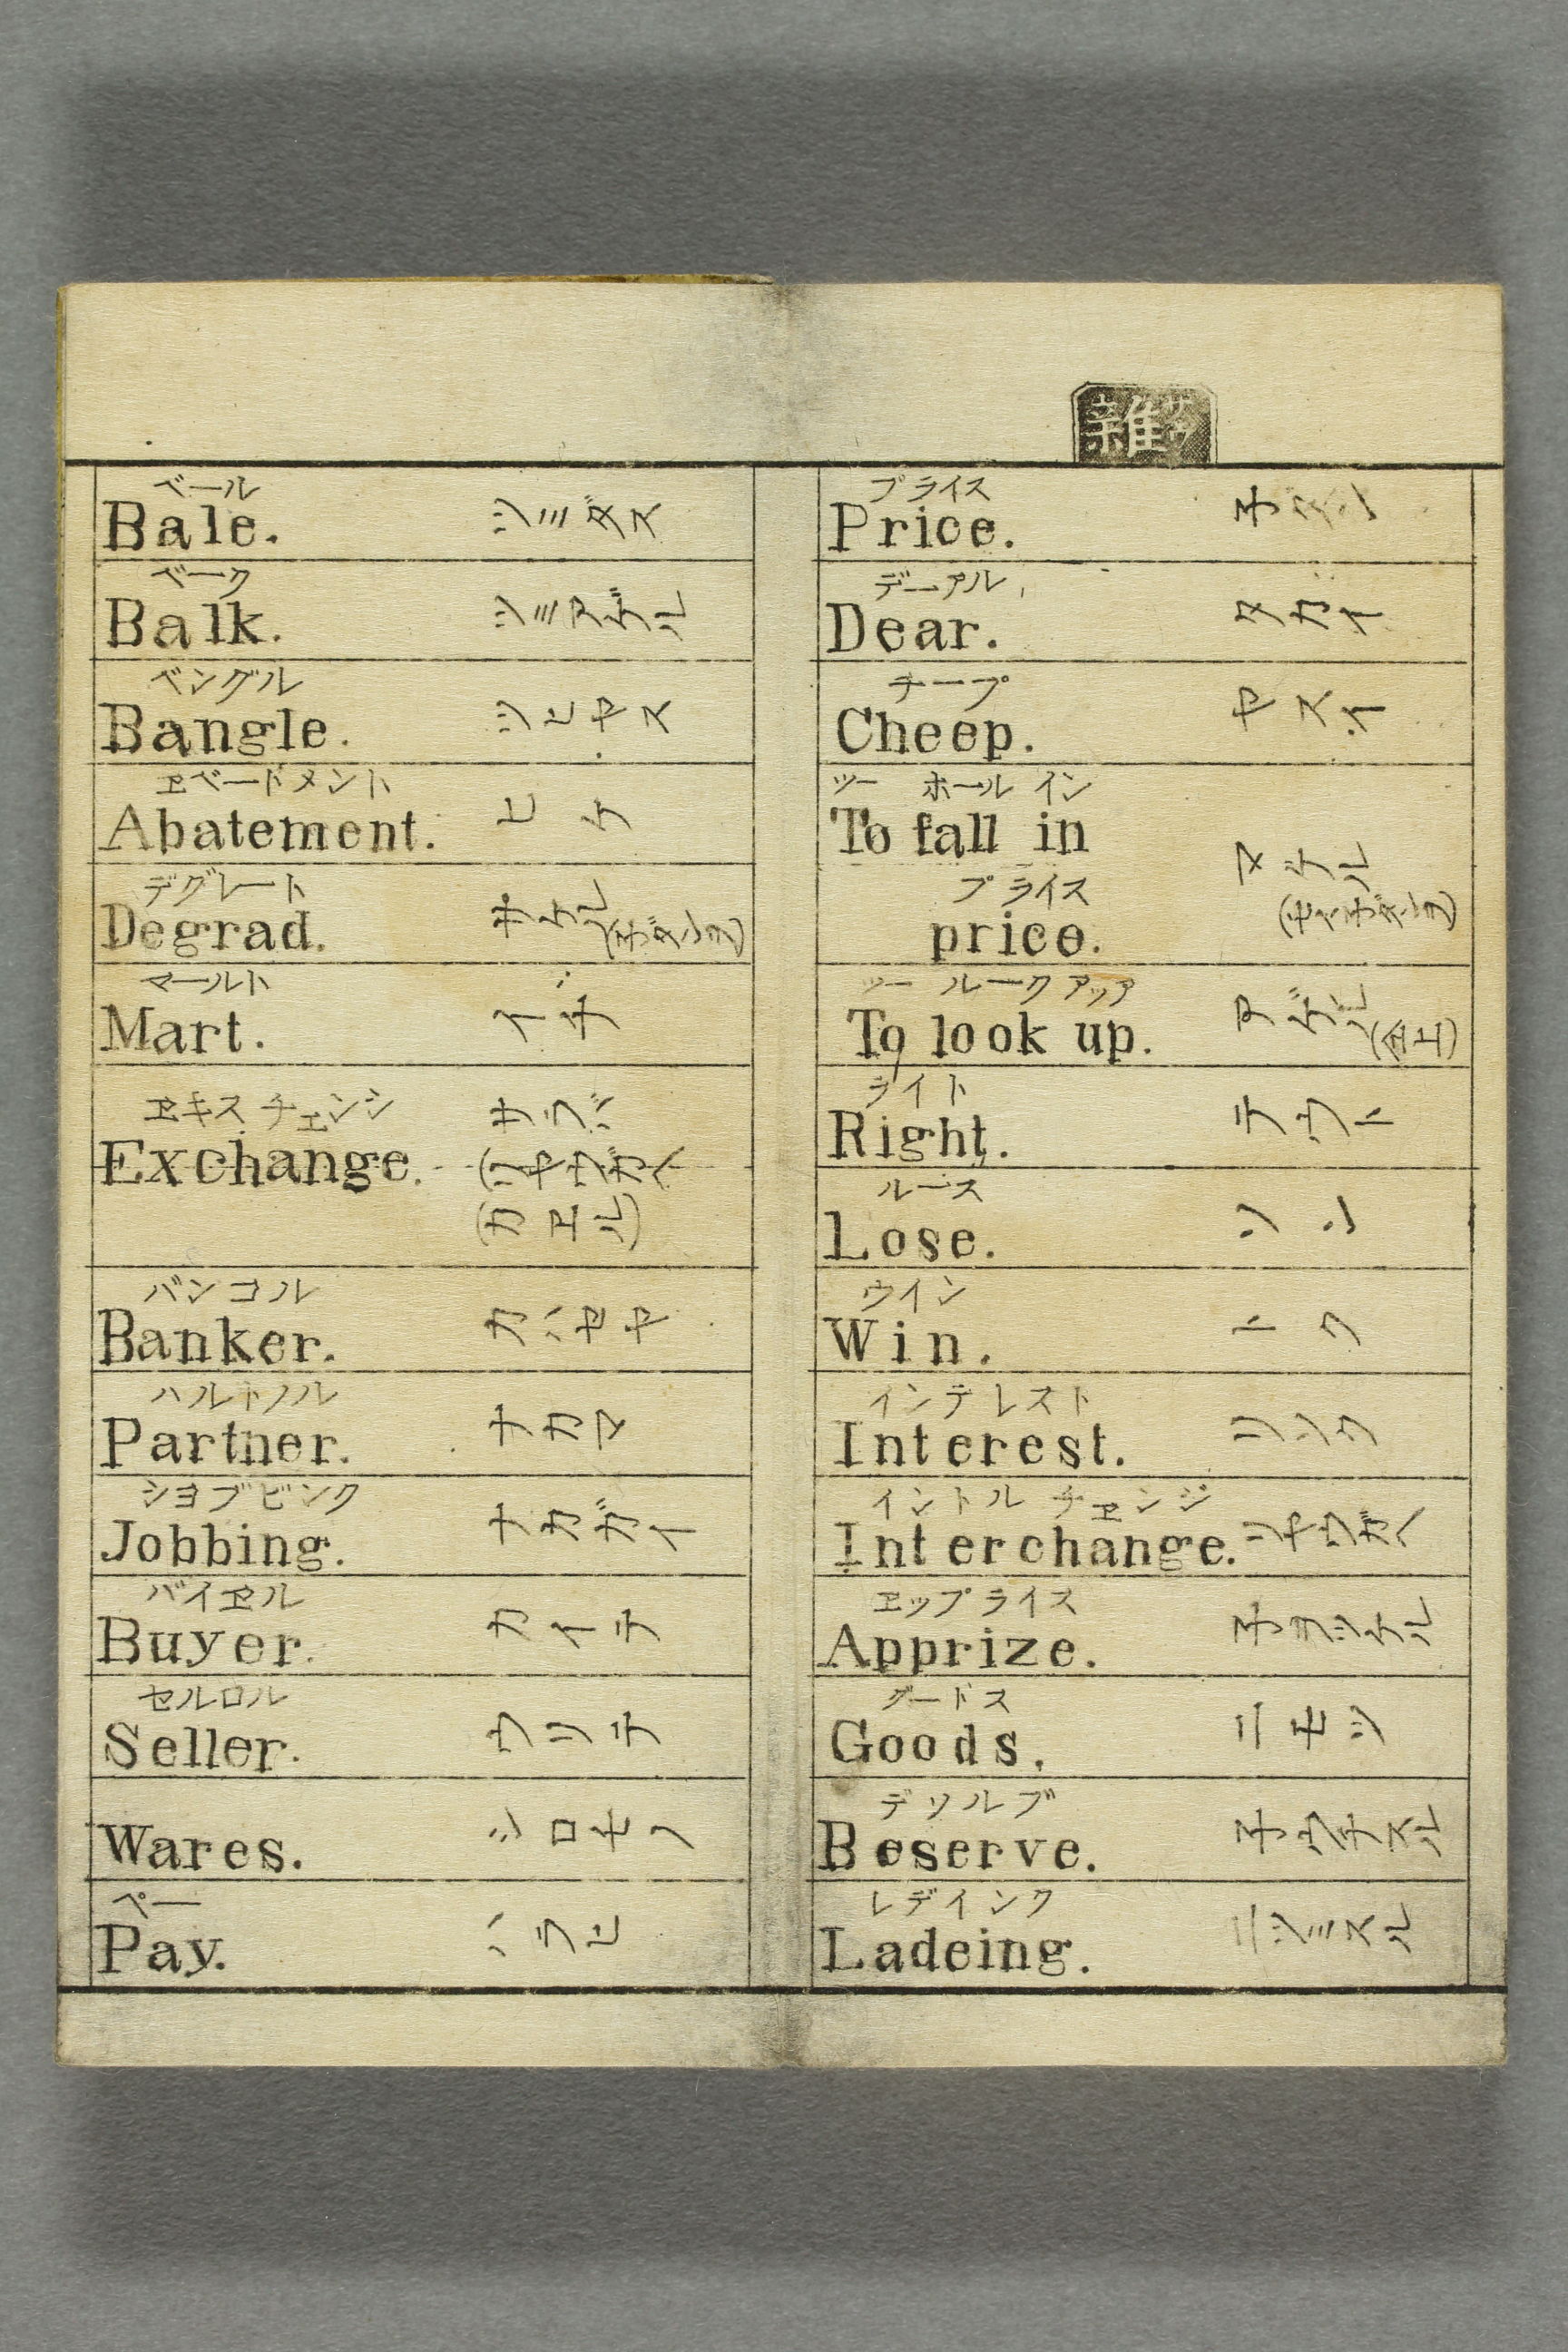 雜
サツ
プライス
Price. ネダン
デーアル
Dear. タカイ
チープ
Cheep. ヤスイ
ツー ホール イン
To fall in
マケル
プライス
price.
ツー ルーク アップ
To look up. アゲル
(仝上)
ライト
Right.
ルース
Lose. ソン
ウイン
Win. トク
インテレスト
Interest. リソク
イントル チエンジ
Interchange. リヤウガヘ
ヱップライス
Apprize.
グードス
Goods. ニモツ
デソルブ
Beserve.
レデインク
Ladeing. ニツミスル
ベール
Bale. ツミダス
ベーク
Balk. ツミアゲル
ベングル
Bangle. ツヒヤス
ヱベードメント
Abatement. ヒケ
デグレート
Degrad. サゲル
(ネダンヲ)
マールト
Mart. イチ
ヱキス チエンシ
Exchange. カワシ
(リヤウガヘ
(カヱル)
バンコル
Banker. カハセヤ
ハルトノル
Partner. ナカマ
シヨブビンク
Jobbing. ナカガイ
バイヱル
Buyer. カイテ
セルロル
Seller. ウリテ
Wares. シロモノ
ペー
Pay. ハラヒ